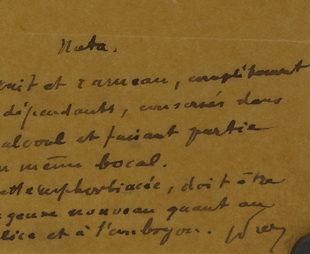 Nota.
et rameau, complètement
dépendants, conservés dans
alcool et faisant partie
même bocal.
euphorbiacée, doit être
nouveau quant au
et à l'embryon.